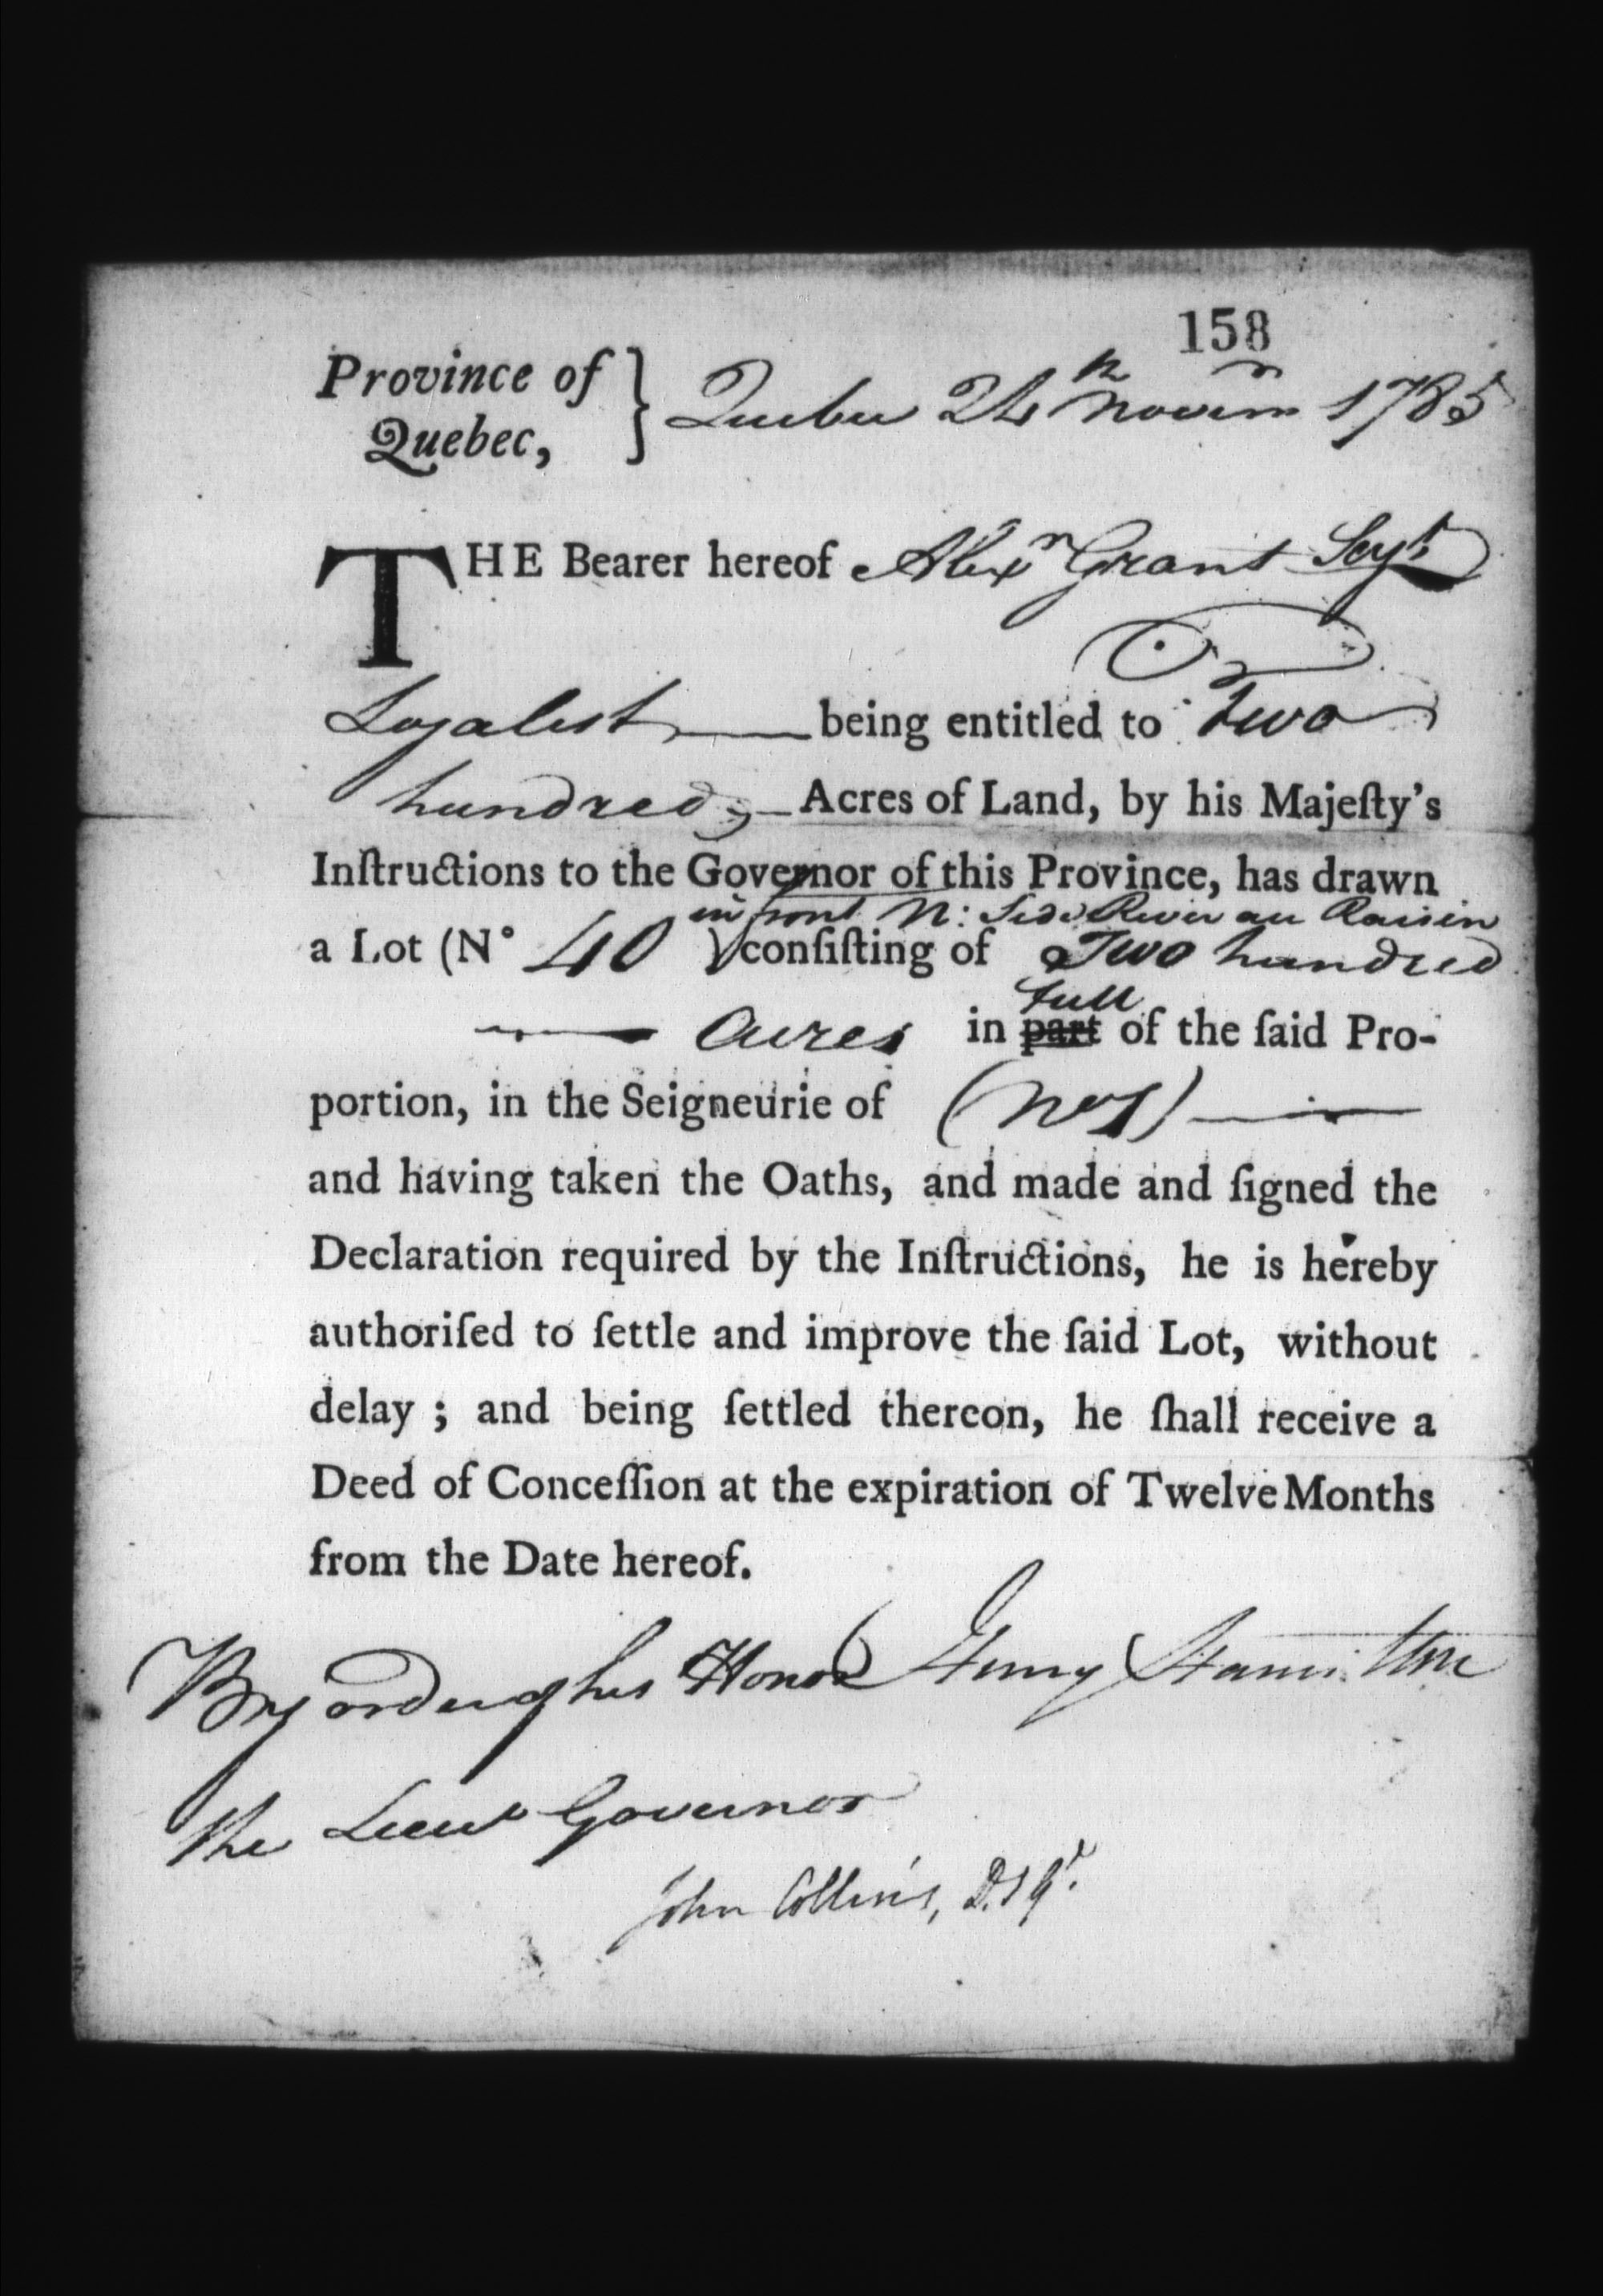 158
Province of } Quebec 24th Novem 1785
Quebec,
THE Bearer hereof Alexr Grant Serjt
Loyalist being entitled to Two
hundred Acres of Land, by his Majeſty's
Inſtructions to the Governor of this Province, has drawn
in front N: Side River au Raisin
a Lot (N° 40 ) conſiſting of Two hundred
full
Acres in part of the ſaid Pro-
portion, in the Seigneurie of (No 1)
and having taken the Oaths, and made and ſigned the
Declaration required by the Inſtructions, he is hereby
authoriſed to ſettle and improve the ſaid Lot, without
delay ; and being ſettled thereon, he ſhall receive a
Deed of Conceſſion at the expiration of Twelve Months
from the Date hereof.
By order of his Honor Henry Hamilton
the Lieut Governor
John Collins, D.S.Gl.